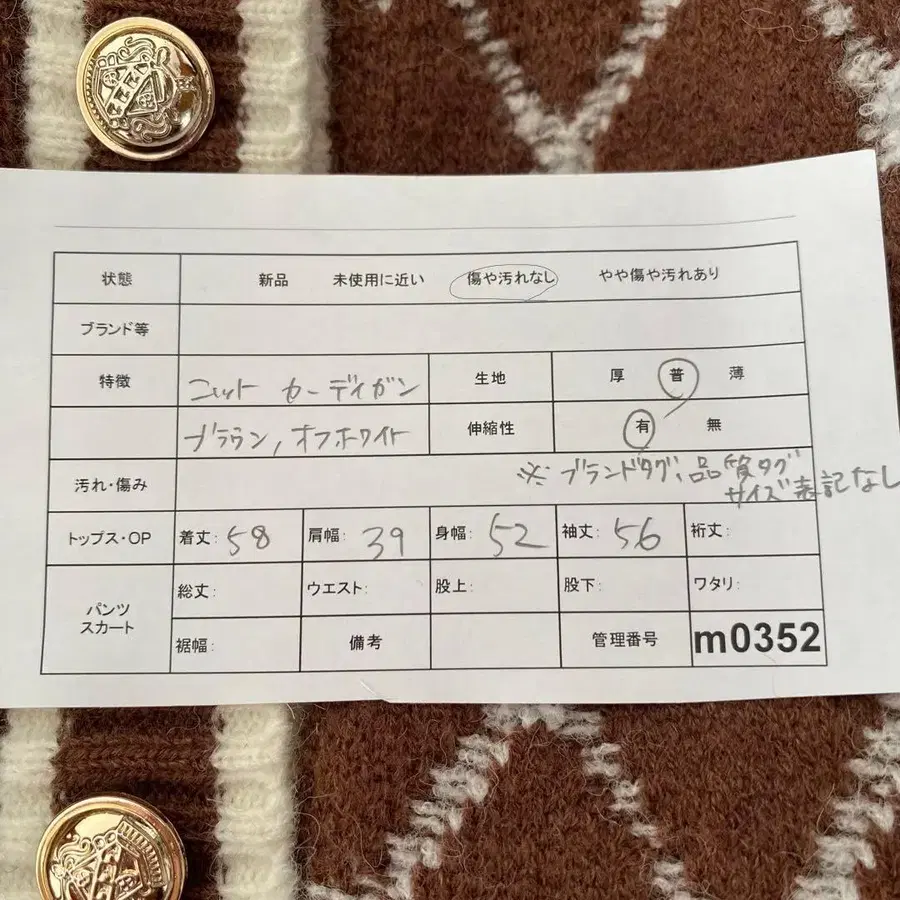 状態 新品 未使用に近い 傷や汚れなし やや傷や汚れあり
ブランド等
特徴 ニット カーディガン 生地 厚 普 薄
ブラウン, オフホワイト 伸縮性 有 無
汚れ・傷み ※ ブランドタグ、品質タグ
サイズ表記なし
トップス・OP 着丈: 58 肩幅: 39 身幅: 52 袖丈: 56 裄丈:
パンツ
スカート
総丈: ウエスト: 股上: 股下: ワタリ:
裾幅: 備考 管理番号 m0352